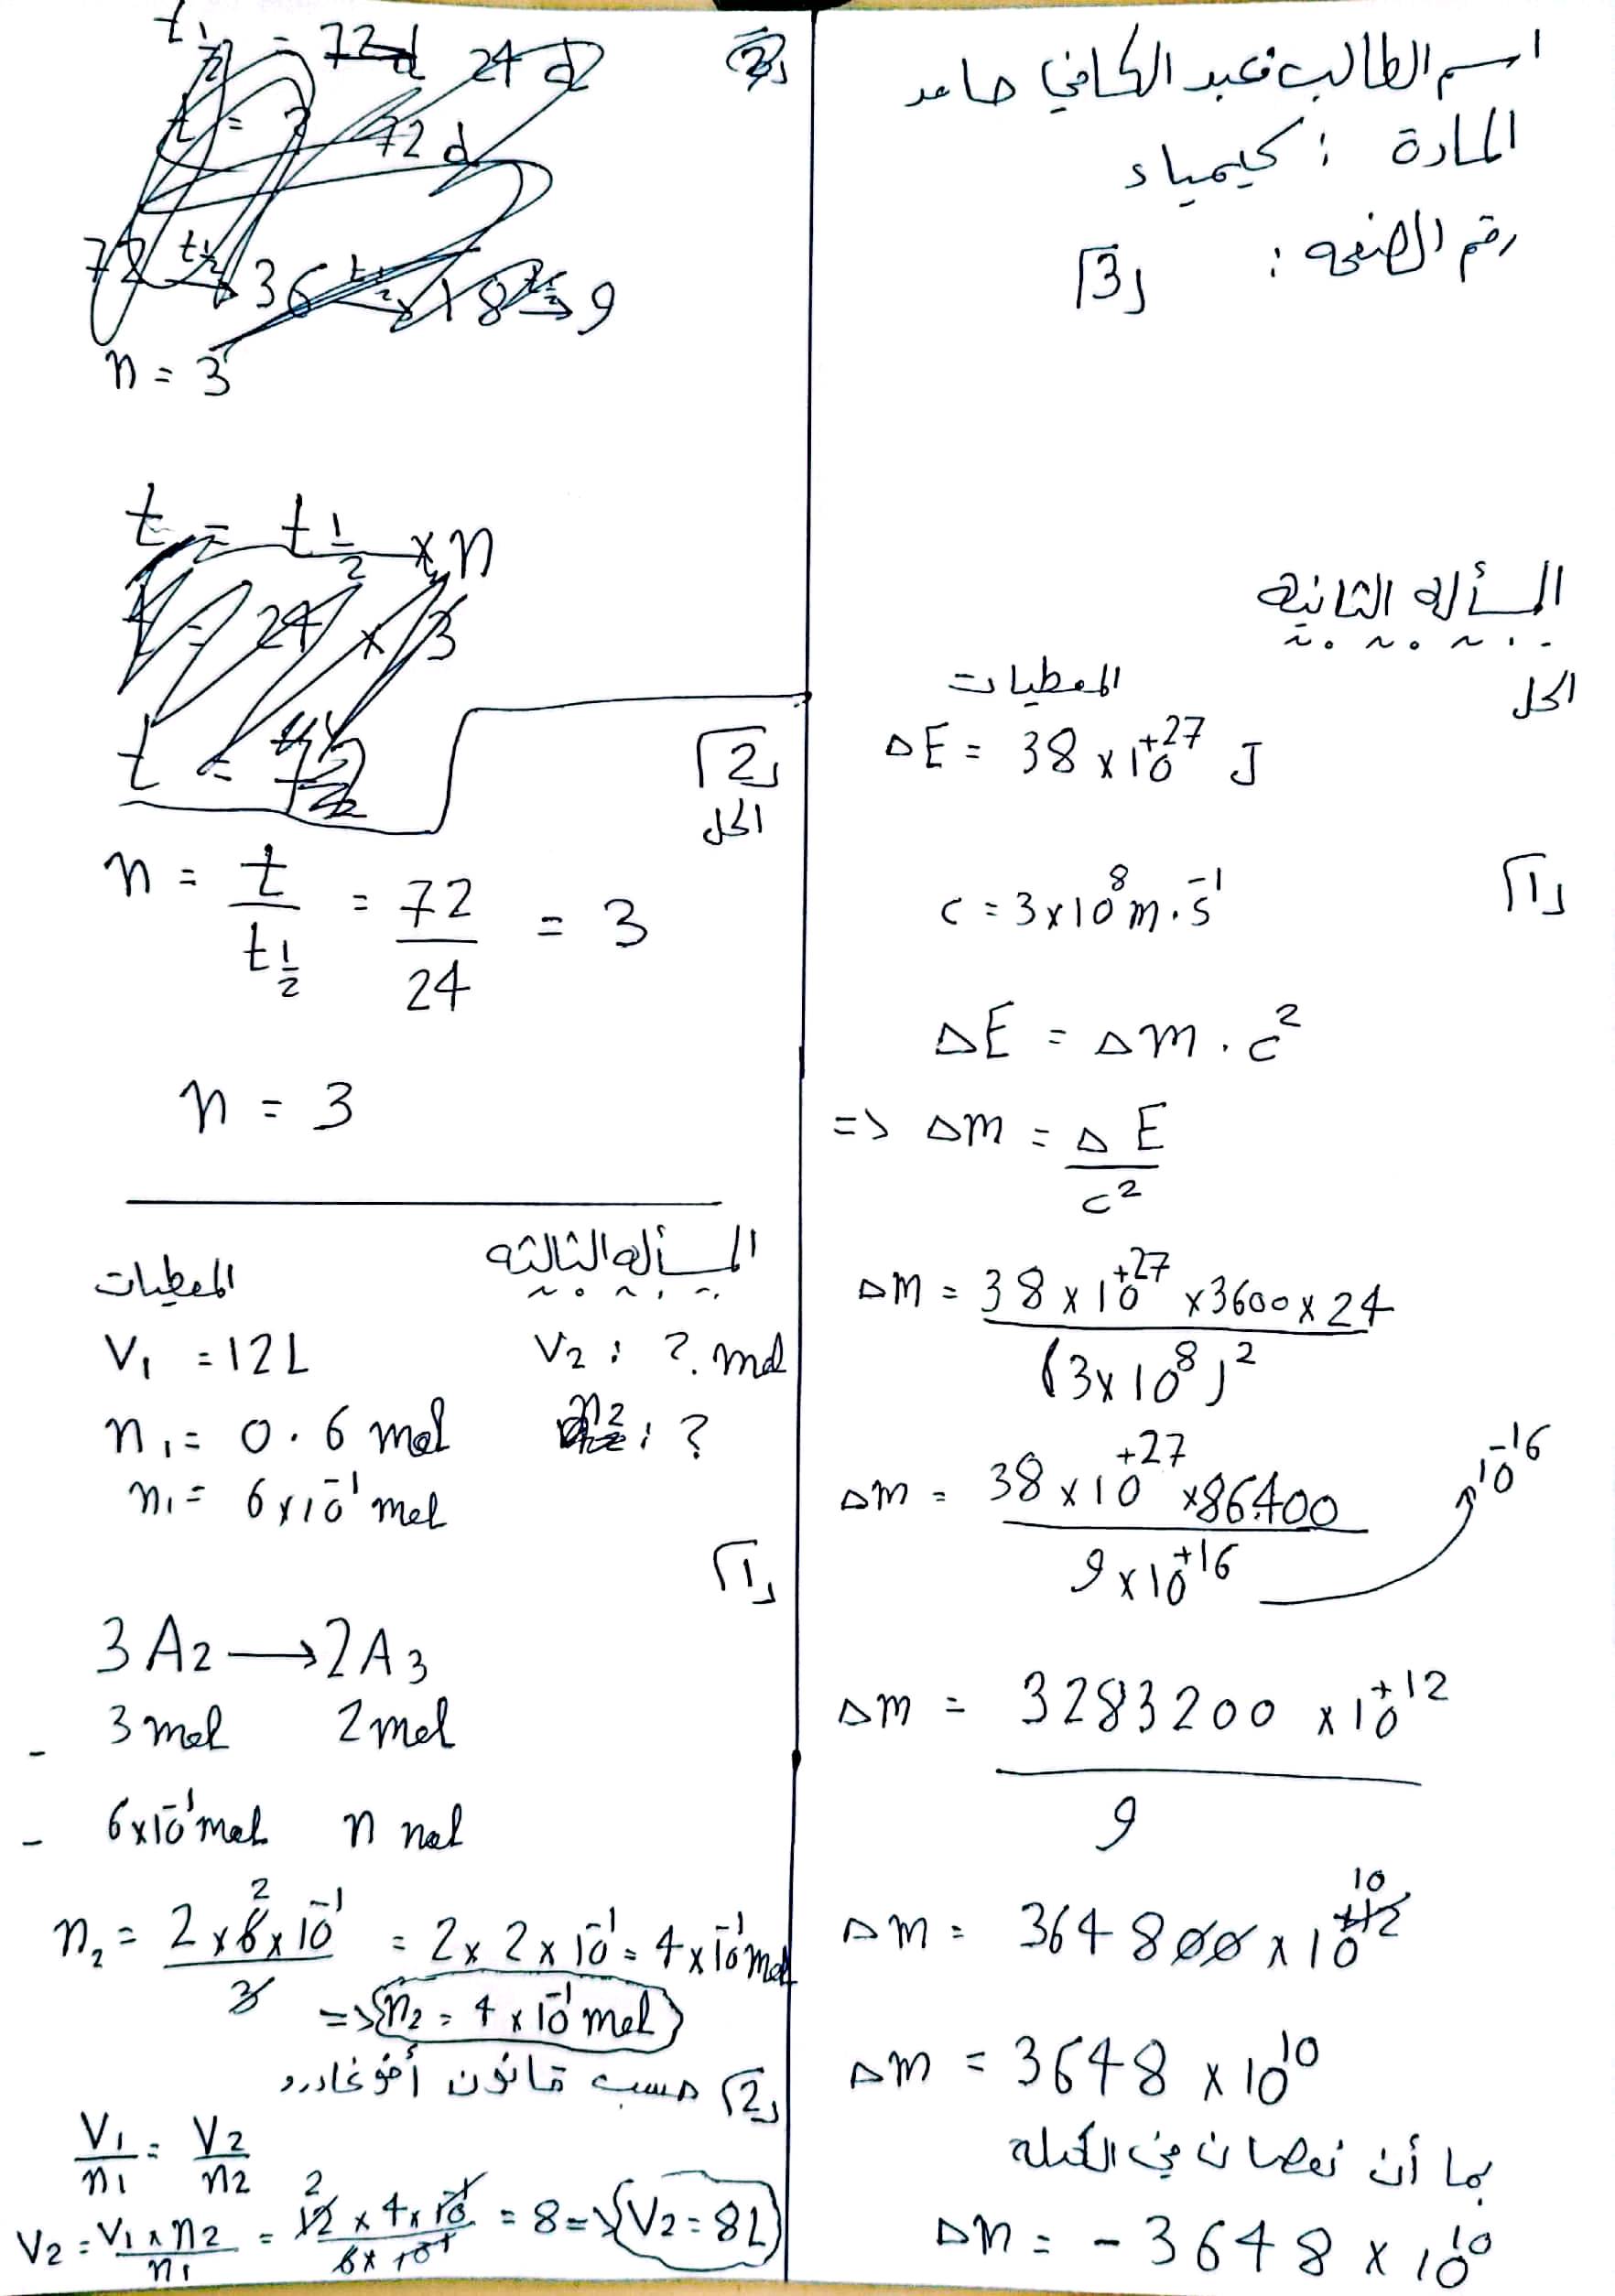 اسم الطالب: عبد الكافي حامد
المادة : كيمياء
رقم الصفحة : 3
المسألة الثانية
الحل
المعطيات
ΔE = 38 x 10^+27 J
1
c = 3x10^8 m.s^-1
ΔE = Δm . c^2
=> Δm = ΔE / c^2
Δm = 38 x 10^+27 x 3600 x 24 / (3x10^8)^2
Δm = 38 x 10^+27 x 86400 / 9 x 10^+16
10^-16
Δm = 3283200 x 10^+12 / 9
Δm = 364800 x 10^+12 10
Δm = 3648 x 10^10
بما أن نقصان في الكتلة
Δm = - 3648 x 10^10
2
t1/2 = 72d 24 d
t = ? 72 d
72 t1/2→ 36 t1/2→ 18 t1/2→ 9
n = 3
t = t1/2 x n
t = 24 x 3
t = 72
2
الحل
n = t / t1/2 = 72 / 24 = 3
n = 3
المسألة الثالثة
المعطيات
V1 = 12L V2 : ? mol
n1 = 0.6 mol n2 : ?
n1 = 6x10^-1 mol
1
3A2 → 2A3
3 mol 2 mol
- 6x10^-1 mol n mol
n2 = 2 x 6 x 10^-1 / 3 = 2 x 2 x 10^-1 = 4 x 10^-1 mol
=> n2 = 4 x 10^-1 mol
2 حسب قانون أفوغادرو
V1 / n1 = V2 / n2
V2 = V1 x n2 / n1 = 12 x 4 x 10^-1 / 6 x 10^-1 = 8 => V2 = 8L